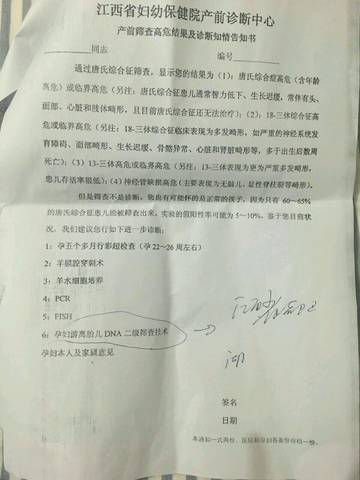 江西省妇幼保健院产前诊断中心
产前筛查高危结果及诊断知情告知书
同志 编号
通过唐氏综合征筛查，显示您的结果为（1）：唐氏综合症高危（含年龄
高危）或临界高危（另注：唐氏综合征患儿通常智力低下、生长迟缓，常伴有头、
面部、心脏和肢体畸形，且目前唐氏综合征还无法治疗）；（2）：18-三体综合征高
危或临界高危（另注：18-三体综合征临床表现为多发畸形，如严重的神经系统发
育障碍、面部畸形、生长迟缓、骨骼异常、心脏和肾脏畸形等，多于出生后数周
死亡）；（3）13-三体高危或临界高危（另注：13-三体临床表现为更为严重多发畸形，
患儿存活率很低）；（4）神经管缺损高危（主要表现为无脑儿、显性脊柱裂等畸形）。
但是筛查不是诊断，您也有可能怀的是正常的孩子，因为只有 60～65%
的唐氏综合征患儿能被筛查出来，实验的假阳性率可能为 5～10%。鉴于您目前状
况，我们建议您行如下进一步诊断：
1：孕五个多月行彩超检查（孕 22～26 周左右）
2：羊膜腔穿刺术
3：羊水细胞培养
4：PCR
5：FISH
6：孕妇游离胎儿 DNA 二级筛查技术
孕妇本人及家属意见
签名
日期
本通知一式两份，医院和孕妇各备份存档一份。